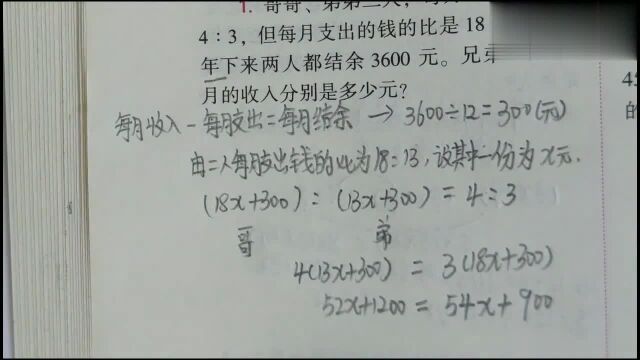 1. 哥哥、弟弟二人,每
4:3,但每月支出的钱的比是 18
年下来两人都结余 3600 元。兄弟
月的收入分别是多少元?
每月收入-每月支出=每月结余 → 3600÷12=300(元)
由二人每月支出钱的比为18:13,设其中一份为x元.
(18x+300):(13x+300)=4:3
哥 弟
4(13x+300) = 3(18x+300)
52x+1200 = 54x+900
45
的